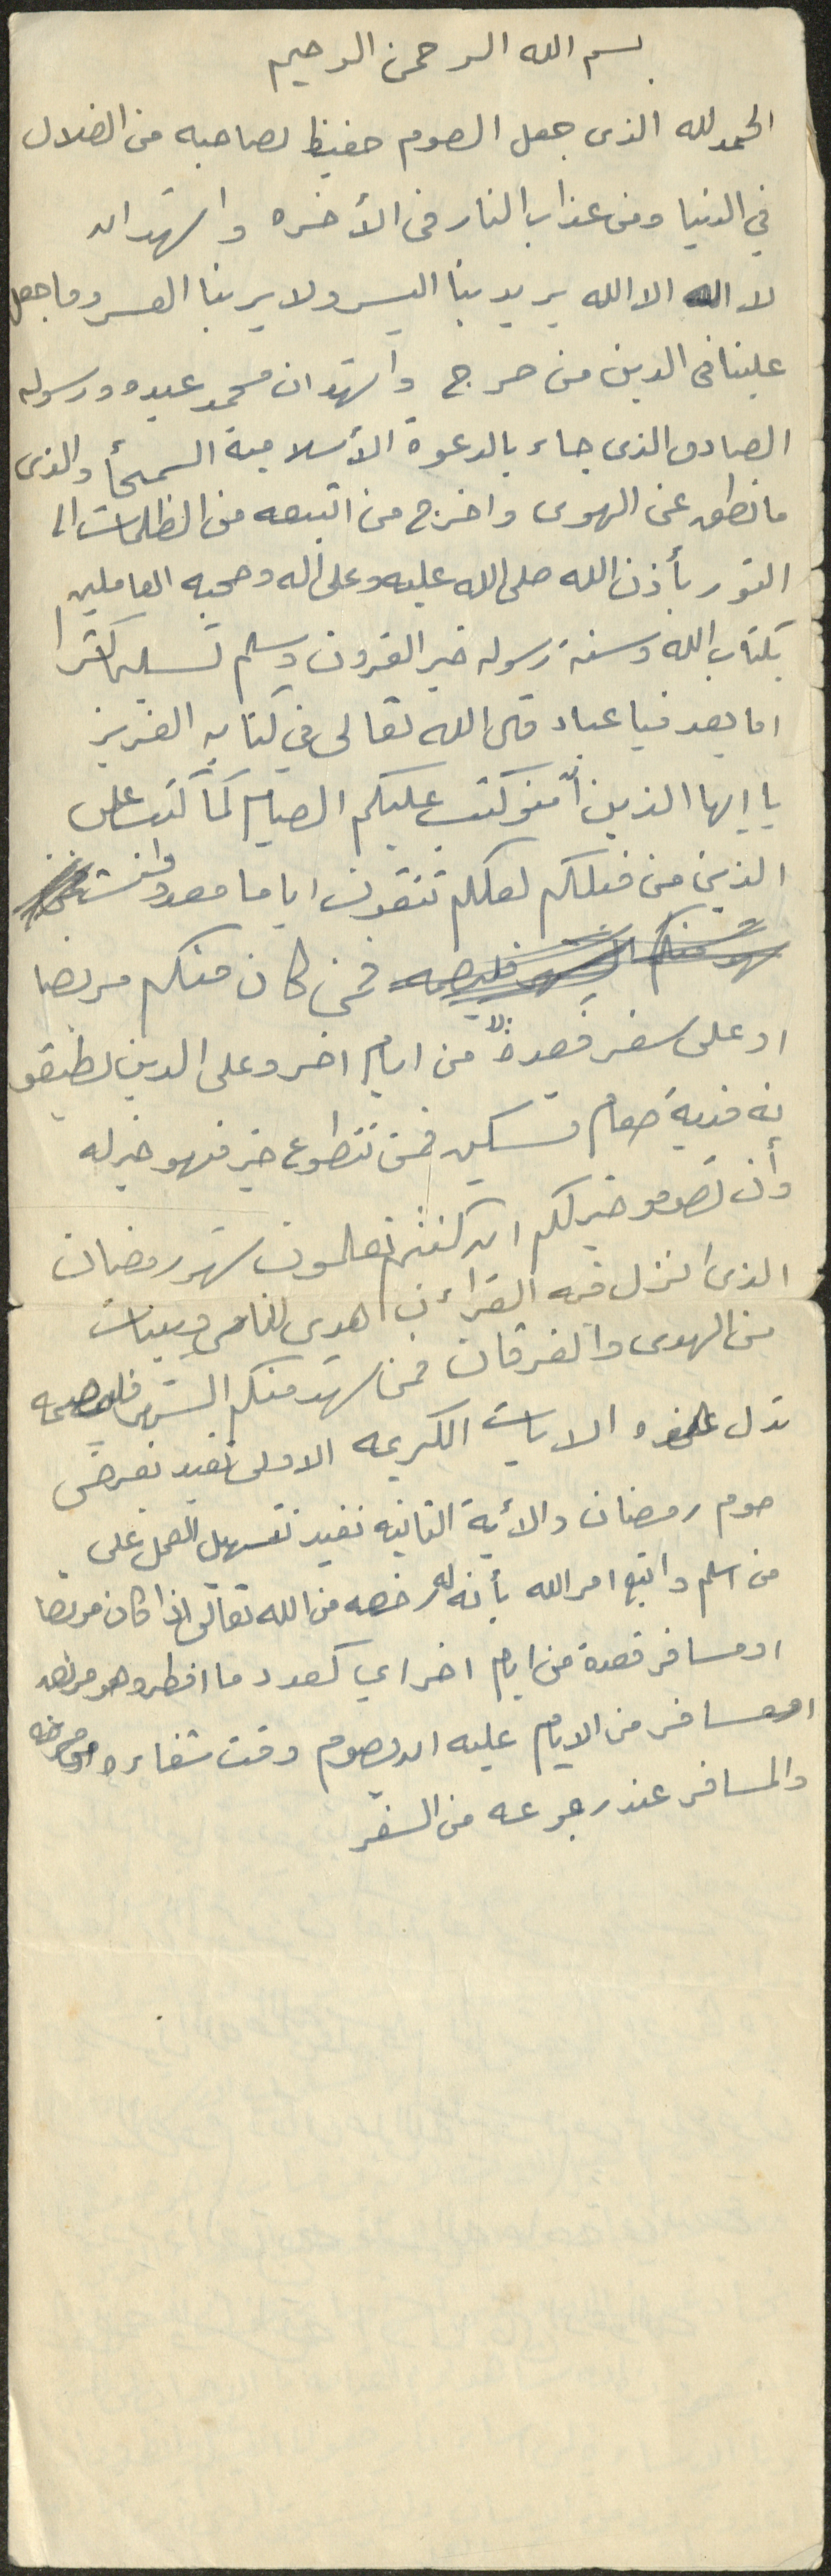 بسم الله الرحمن الرحيم
الحمدلله الذى جعل الصوم حفيظ لصاحبه من الضلال
في الدنيا ومن عذاب النار فى الأخره واشهد ان
لا اله الا الله يريد بنا اليسر ولا يربنا العسر وما جعل
علينا فى الدين من حرج واشهد ان محمد عبده ورسوله
الصادق الذى جاء بالدعوة الأسلامية السمحأ والذى
ما نطق عن الهوى واخرج من اتبعه من الظلمات الى
النور بأذن الله صلى الله عليه وعلى اله وصحبه العاملين
بكتاب الله وسنة رسوله خير القرون وسلم تسليما كثيرا
اما بعد فيا عباد قال الله تعالى في كتابه العزيز
يا ايها الذين أمنو كتب عليكم الصيام كما كتب على
الذين من قبلكم لعلكم تتقون اياما معدو
فمن كان منكم مريضا
او على سفر فعدة من ايام اخر وعلى الدين يطيقو
نه فدية طعام مسكين فمن تتطوع خير فهو خير له
وأن تصومو خير لكم ان كنتم تعلمون شهر رمضان
الذى انزل فيه القراءن هدى للناس وبينات
من الهدى والفرقان فمن شهد منكم الشهر فليصمه
تدل هذه الايات الكريمه الاولى تفيد بفرض
صوم رمضان والأية الثانيه تفيد تسهيل العمل على
من اسلم واتبع امر الله بأنه له رخصه من الله تعالى اذا كان مريضا
او مسافر فعدة من ايام اخر اي كعدد ما افطر وهو مريض
او مسافر من الايام عليه ان يصوم وقت شفاءه من مرضه
والمسافر عند رجوعه من السفر